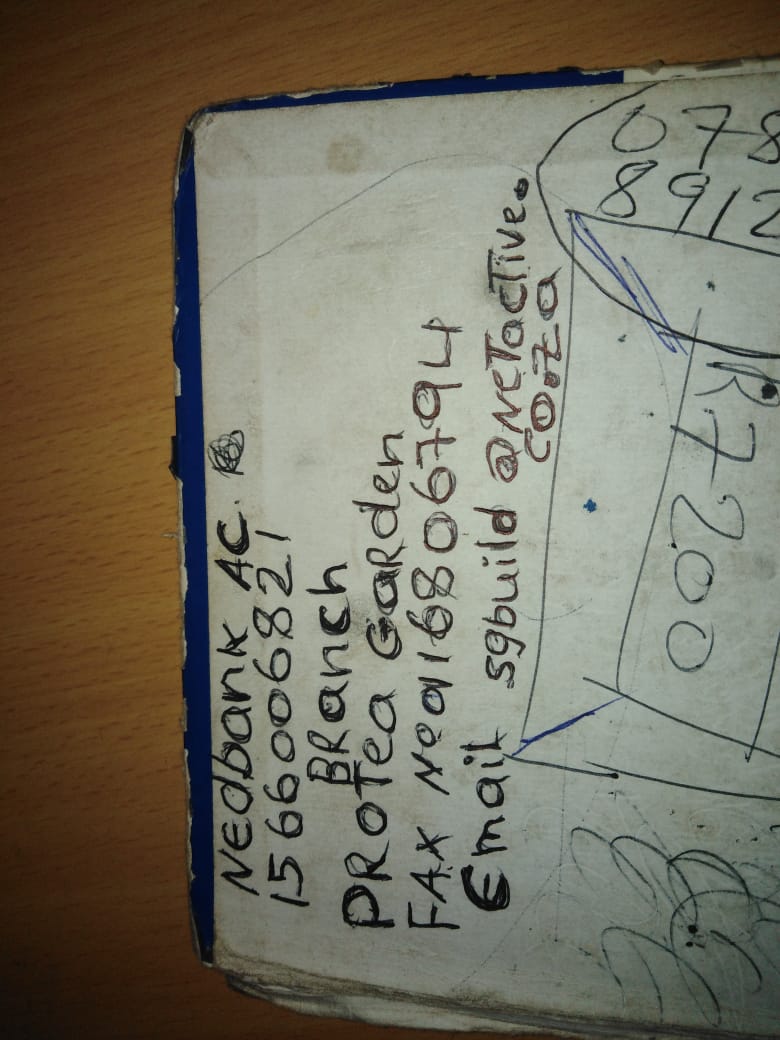 NEdbank AC.
1566006821
BRanch
PROTea GaRden
FAX No 0116806794
Email sgbuild @NeTacTive.
CO.za
R7200